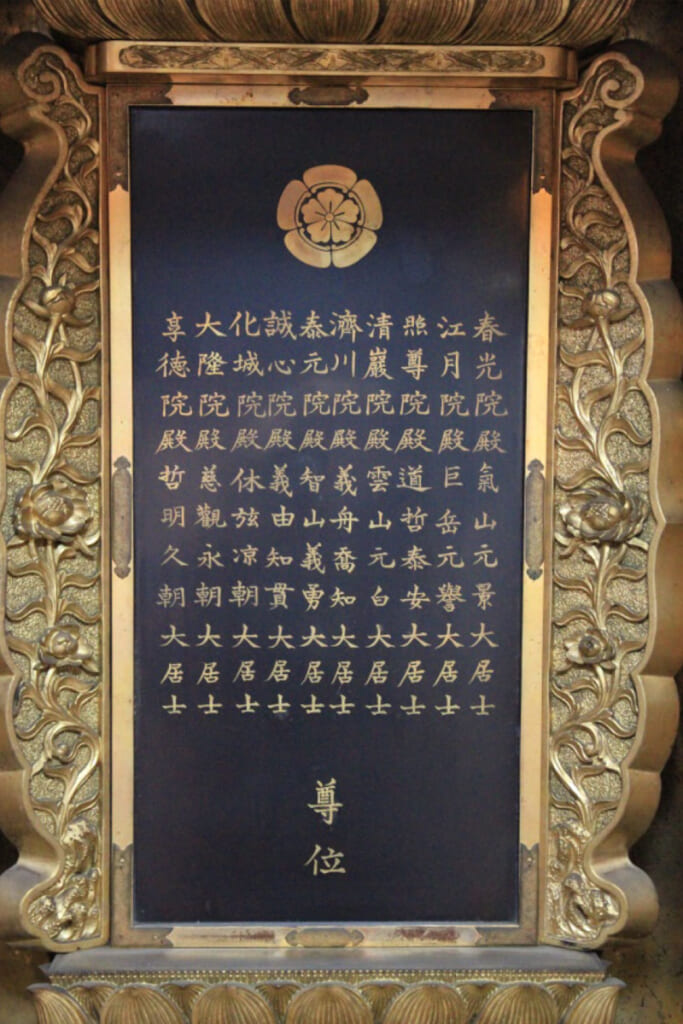 春光院殿氣山元景大居士
江月院殿巨岳元譽大居士
照尊院殿道哲泰安大居士
清巖院殿雲山元白大居士
濟川院殿義舟喬知大居士
泰元院殿智山義勇大居士
誠心院殿義由知貫大居士
化城院殿休玆凉朝大居士
大隆院殿慈觀永朝大居士
享德院殿哲明久朝大居士
尊位